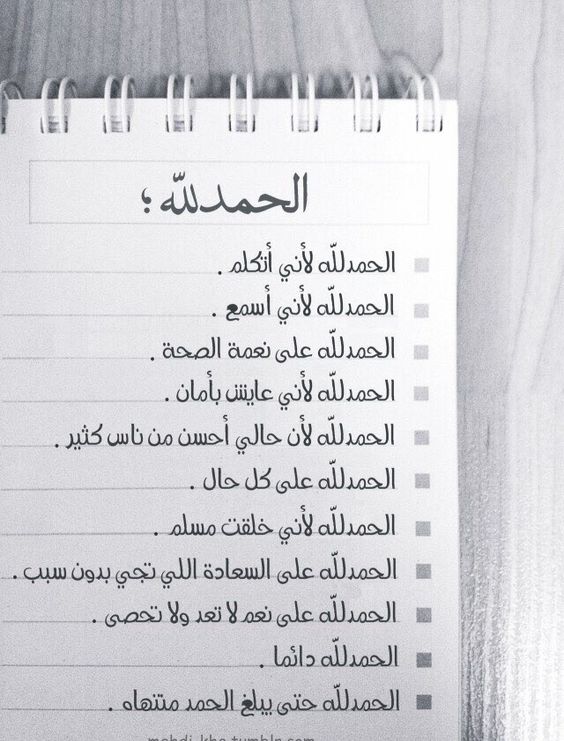 الحمدللّه ؛
الحمدللّه لأني أتكلم .
الحمدللّه لأني أسمع .
الحمدللّه على نعمة الصحة .
الحمدللّه لأني عايش بأمان .
الحمدللّه لأن حالي أحسن من ناس كثير .
الحمدللّه على كل حال .
الحمدللّه لأني خلقت مسلم .
الحمدللّه على السعادة اللي تجي بدون سبب .
الحمدللّه على نعم لا تعد ولا تحصى .
الحمدللّه دائما .
الحمدللّه حتى يبلغ الحمد منتهاه .
mohdi-kha.tumblr.com